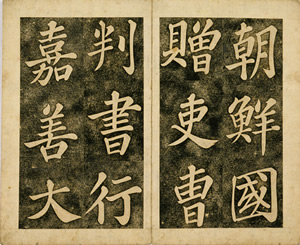 朝鮮國
贈吏曹
判書行
嘉善大